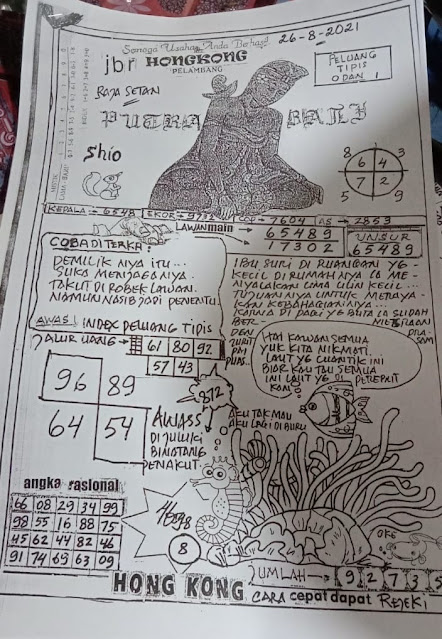 Semoga Usaha Anda Berhasil
26-8-2021
jbr HONGKONG
PELAMBANG
PELUANG
TIPIS
0 DAN 1
RAJA SETAN
PUTRA BALI
Shio
8 3
6 4
7 2
5 9
KEPALA → 6548 EKOR → 9732 COP → 7604 AS → 2853
LAWAN main
65489
17302
UNSUR
65489
COBA DITERKA?
DEMILIK NYA ITU...
SUKA MENJAGANYA.
TAKUT DI ROBEK LAWAN.
NAMUN NASIB JADI PENENTU.
IBU SURI DI RUANGAN YG
KECIL DI RUMAHNYA IA ME-
NYALAKAN LIMA LILIN KECIL...
TUJUANNYA UNTUK MERAYA-
KAN KEBAHAGIAANNYA...
KARNA DI PAGI YG BUTA IA SUDAH
BER-
AWAS! INDEX PELUANG TIPIS
JALUR UANG → 61 80 92
57 43
HAI KAWAN SEMUA
YUK KITA NIKMATI.
LAUT YG CANTIK INI
BIAR KAU TAU SEMUA
INI LAUT YG DI
96 89
64 54
872
AWASS
DI JULUKI
BINATANG
PENAKUT.
AKU TAK MAU
AKU LAGI DI BURU
angka rasional
66 08 29 34 99
98 55 16 88 75
45 62 44 82 46
91 74 69 63 09
8
OKE
JUMLAH → 9 2 7 3 5
HONG KONG CARA cepat dapat REJEKI